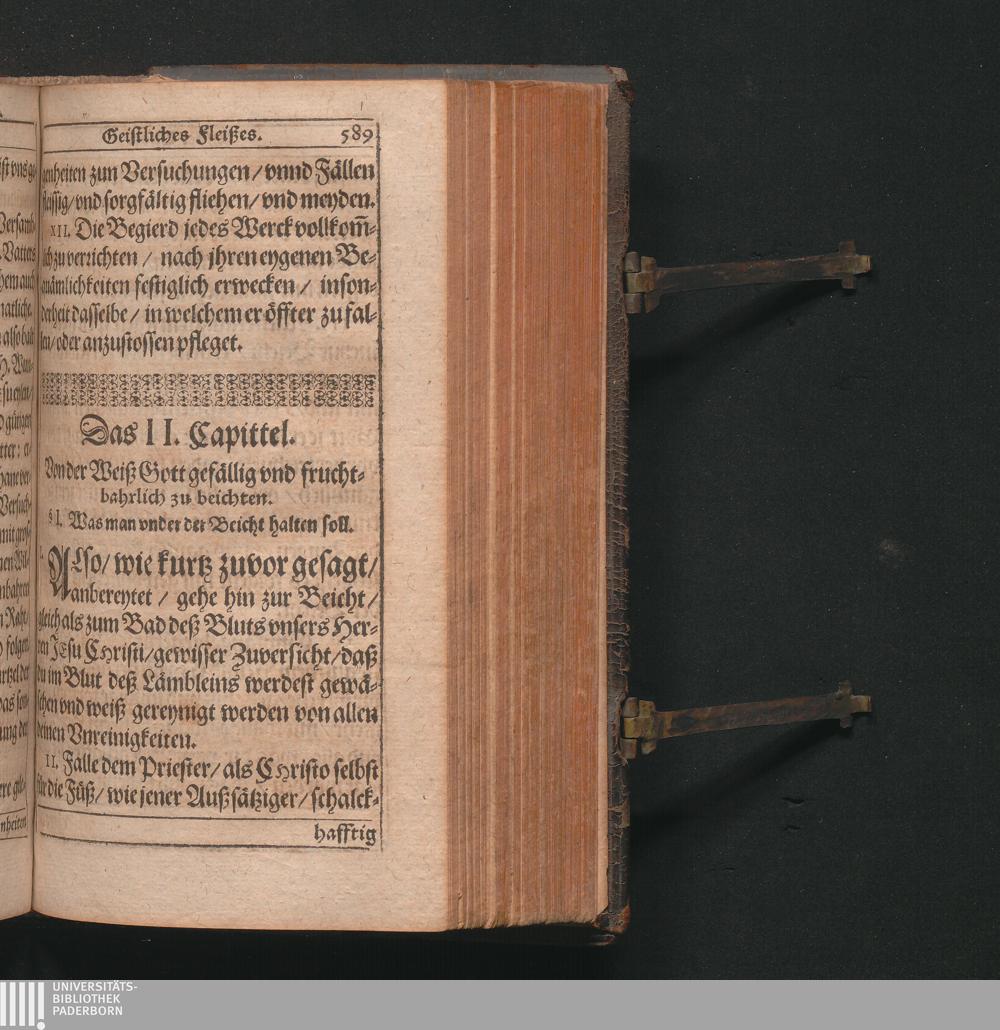 Geistliches Fleißes. 589
genheiten zun Versuchungen / vnnd Fällen
fleissig / vnd sorgfältig fliehen / vnd meyden.
XII. Die Begierd jedes Werck vollkom̃-
lich zu verrichten / nach jhren eygenen Be-
quämlichkeiten festiglich erwecken / inson-
derheit dasselbe / in welchem er öffter zu fal-
len / oder anzustossen pfleget.
Das II. Capittel.
Von der Weiß Gott gefällig vnd frucht-
bahrlich zu beichten.
§ I. Was man vnder der Beicht halten soll.
I. Also / wie kurtz zuvor gesagt /
anbereytet / gehe hin zur Beicht /
gleich als zum Bad deß Bluts vnsers Her-
ren JEsu CHristi / gewisser Zuversicht / daß
du im Blut deß Lämbleins werdest gewä-
schen vnd weiß gereynigt werden von allen
deinen Vnreinigkeiten.
II. Falle dem Priester / als CHristo selbst
für die Füß / wie jener Außsätziger / schalck-
hafftig
UNIVERSITÄTS-
BIBLIOTHEK
PADERBORN